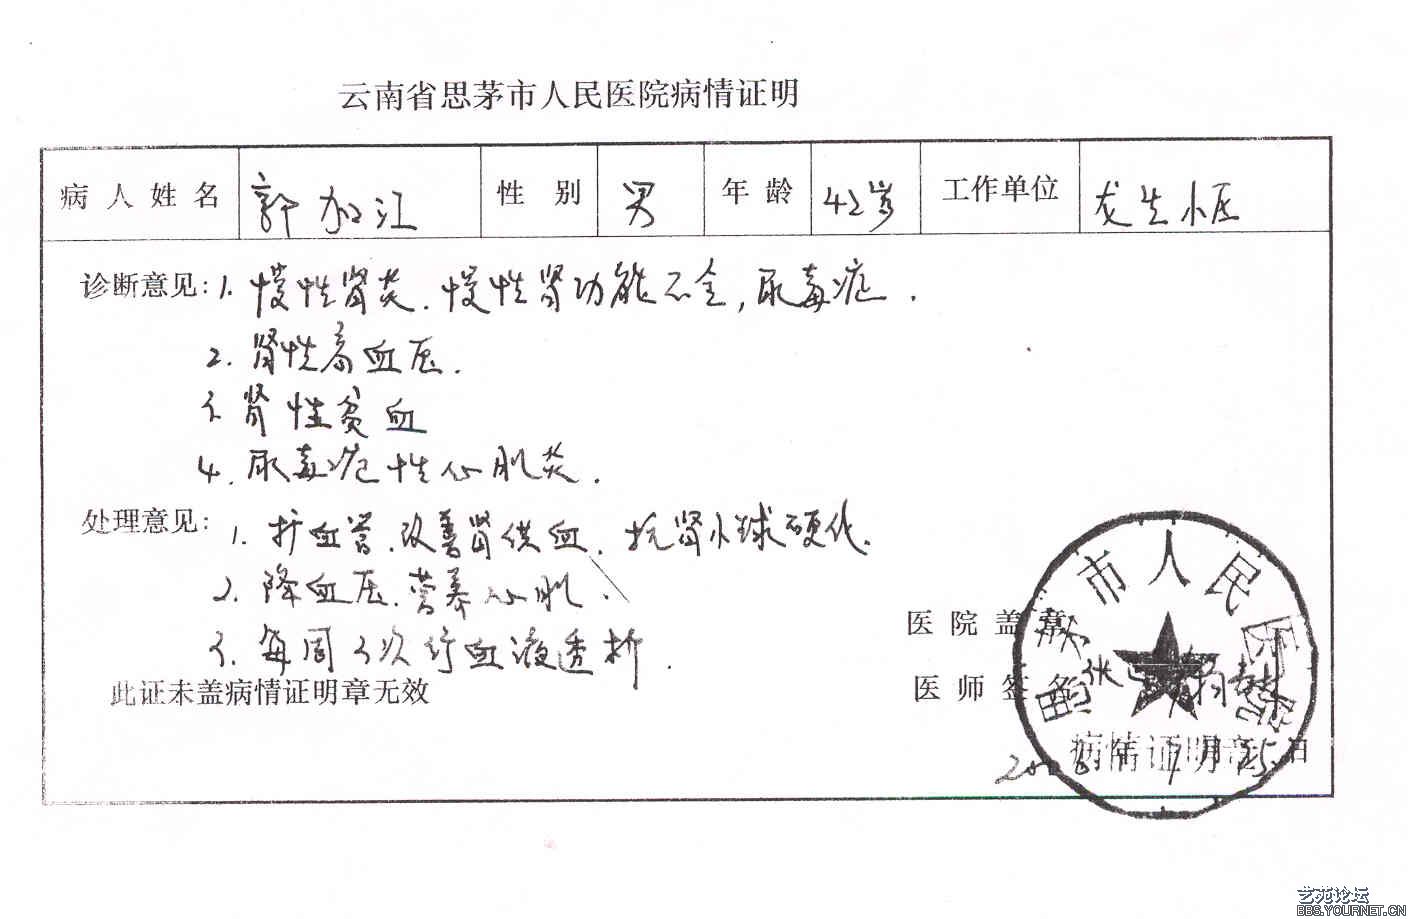 云南省思茅市人民医院病情证明
病人姓名 郭加江 性别 男 年龄 42岁 工作单位 龙生小区
诊断意见: 1. 慢性肾炎. 慢性肾功能不全, 尿毒症.
2. 肾性高血压.
3. 肾性贫血
4. 尿毒症性心肌炎.
处理意见: 1. 扩血管. 改善肾供血. 抗肾小球硬化.
2. 降血压. 营养心肌.
3. 每周3次行血液透析.
医院盖章
此证未盖病情证明章无效
医师签名
年 月 日
思茅市人民医院
病情证明章
艺苑论坛
BBS.YOURNET.CN